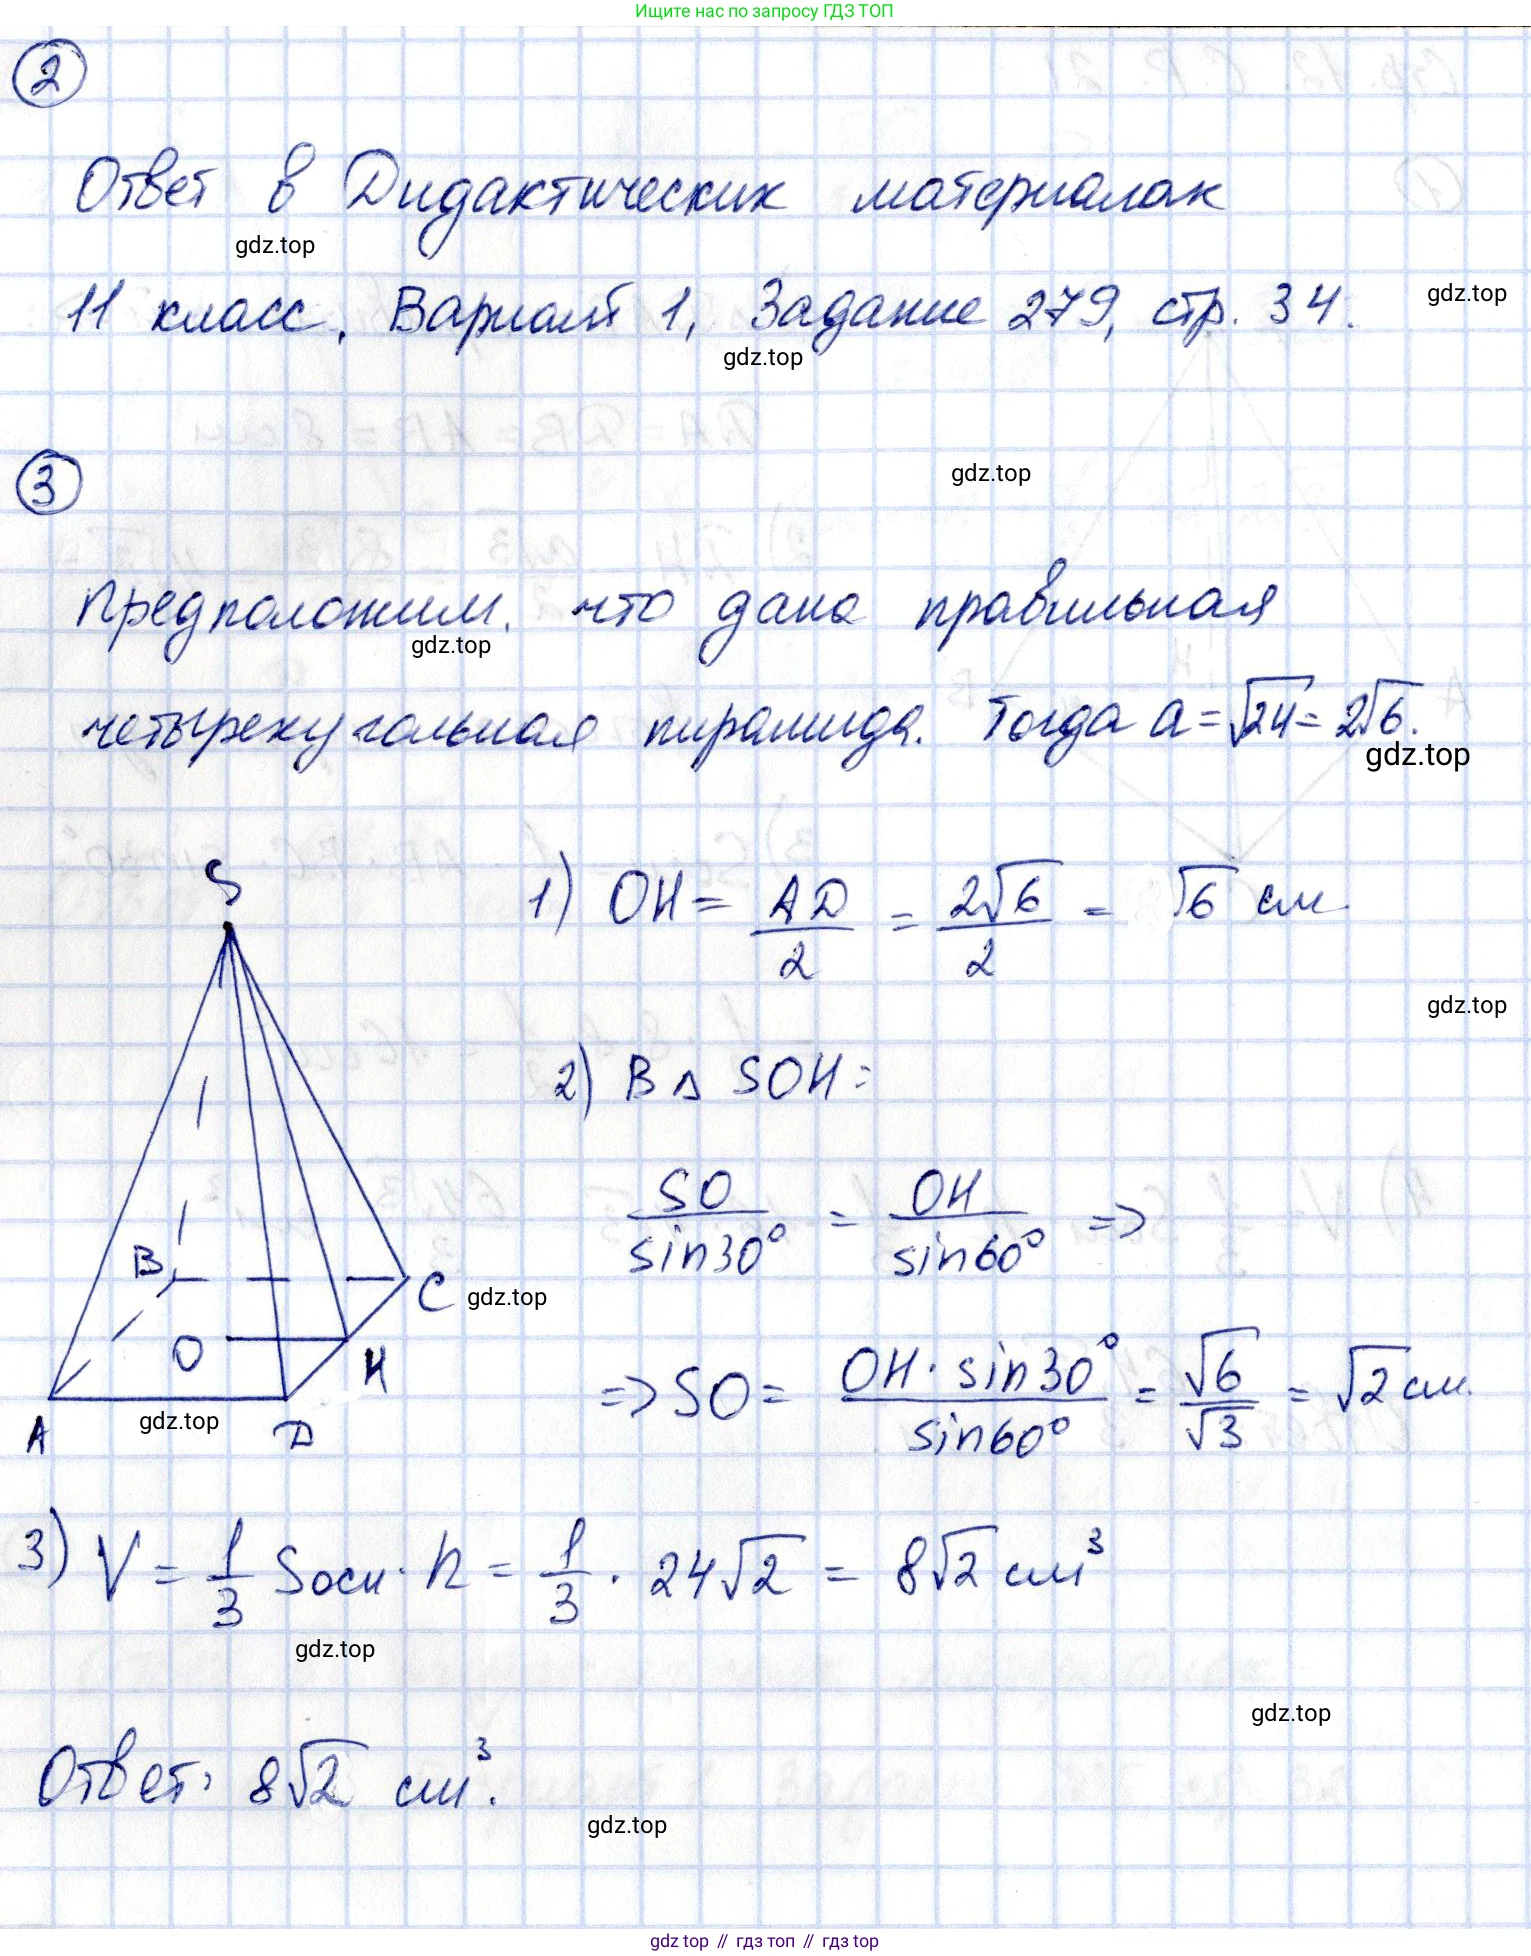 Ищите нас по запросу ГДЗ ТОП
2
Ответ в Дидактических материалах
gdz.top
11 класс, Вариант 1, Задание 279, стр. 34.
gdz.top
gdz.top
3
gdz.top
Предположим, что дана правильная
gdz.top
четырехугольная пирамида. Тогда a = √24 = 2√6.
gdz.top
S
1) OH = AD/2 = 2√6/2 = √6 см
gdz.top
2) В △ SOH:
SO/sin30° = OH/sin60° =>
B
C
gdz.top
O
H
=> SO = OH · sin30°/sin60° = √6/√3 = √2 см.
A
gdz.top
D
3) V = 1/3 Sосн · h = 1/3 · 24√2 = 8√2 см³
gdz.top
gdz.top
Ответ: 8√2 см³.
gdz.top
gdz top // гдз топ // gdz top